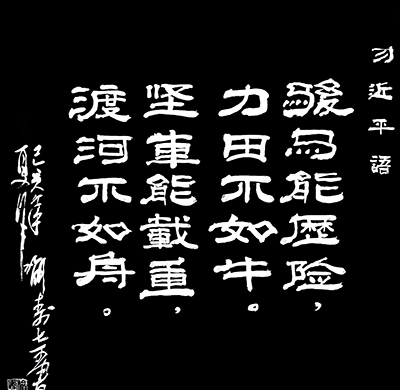 习近平語
骏马能歷险,
力田不如牛。
坚車能載重,
渡河不如舟。
己亥年
夏